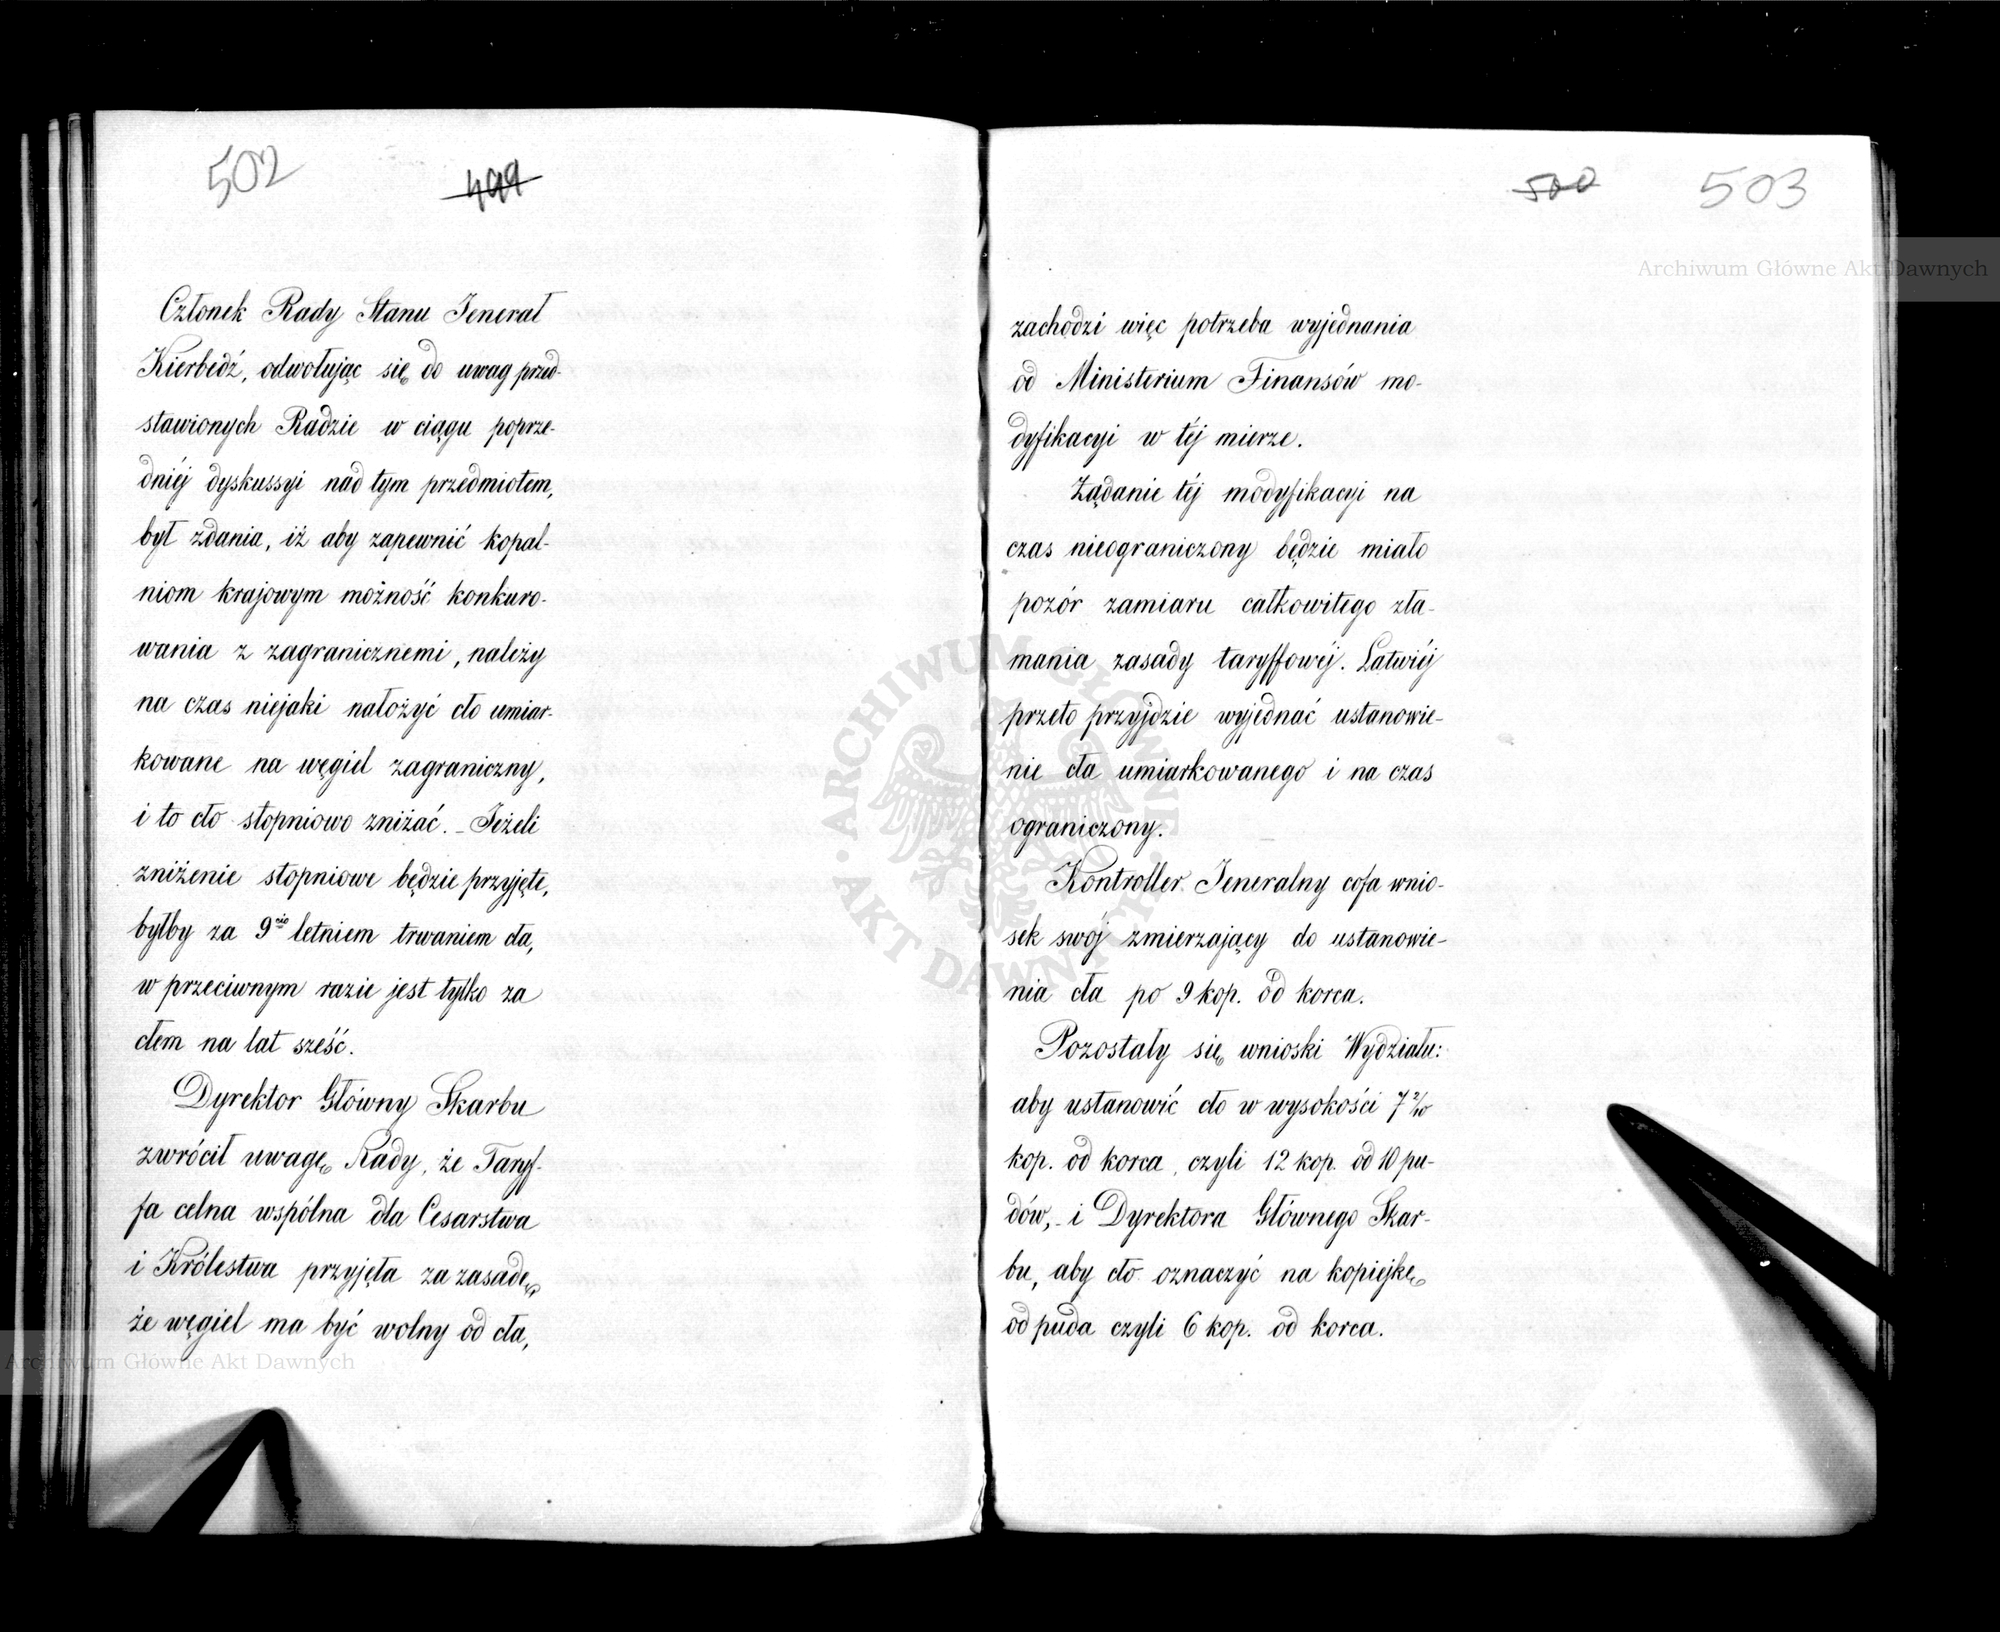 502
499
Członek Rady Stanu Jenerał
Kierbedź, odwołując się do uwag przed-
stawionych Radzie w ciągu poprze-
dniéj dyskussyi nad tym przedmiotem,
był zdania, iż aby zapewnić kopal-
niom krajowym możność konkuro-
wania z zagranicznemi, należy
na czas niejaki nałożyć cło umiar-
kowane na węgiel zagraniczny,
i to cło stopniowo zniżać. – Jeżeli
zniżenie stopniowe będzie przyjęte,
byłby za 9cio letniem trwaniem cła,
w przeciwnym razie jest tylko za
cłem na lat sześć.
Dyrektor Główny Skarbu
zwrócił uwagę Rady, że Taryf-
fa celna wspólna dla Cesarstwa
i Królestwa przyjęła za zasadę,
że węgiel ma być wolny od cła,
500
503
zachodzi więc potrzeba wyjednania
od Ministerium Finansów mo-
dyfikacyi w téj mierze.
Żądanie téj modyfikacyi na
czas nieograniczony będzie miało
pozór zamiaru całkowitego zła-
mania zasady taryffowéj. Łatwiéj
przeto przyjdzie wyjednać ustanowie-
nie cła umiarkowanego i na czas
ograniczony.
Kontroller Jeneralny cofa wnio-
sek swój zmierzający do ustanowie-
nia cła po 9 kop. od korca.
Pozostały się wnioski Wydziału:
aby ustanowić cło w wysokości 7 2/10
kop. od korca, czyli 12 kop. od 10 pu-
dów, – i Dyrektora Głównego Skar-
bu, aby cło oznaczyć na kopiejkę
od puda czyli 6 kop. od korca.
Archiwum Główne Akt Dawnych
Archiwum Główne Akt Dawnych
ARCHIWUM GŁÓWNE
AKT DAWNYCH